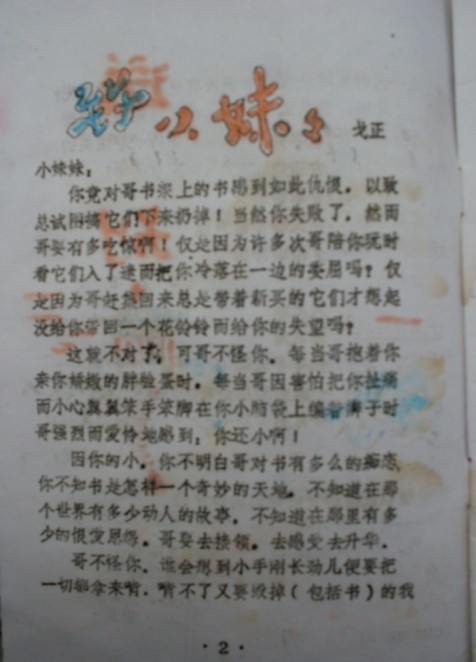 给小妹妹
戈正
小妹妹：
你竟对哥书架上的书感到如此仇恨。以致
总试图摘它们下来扔掉！当然你失败了。然而
哥要有多吃惊啊！仅是因为许多次哥陪你玩时
看它们入了迷而把你冷落在一边的委屈吗？仅
是因为哥赶集回来总是带着新买的它们才想起
没给你带回一个花铃铃而给你的失望吗？
这就不对了，可哥不怪你。每当哥抱着你
亲你娇嫩的胖脸蛋时。每当哥因害怕把你扯痛
而小心翼翼笨手笨脚在你小脑袋上编着辫子时
哥强烈而爱怜地感到：你还小啊！
因你的小。你不明白哥对书有多么的痴恋。
你不知书是怎样一个奇妙的天地。不知道在那
个世界有多少动人的故事。不知道在那里有多
少的恨爱恩怨。哥要去接领。去感受去升华。
哥不怪你。谁会想到小手刚长劲儿便要把
一切都拿来啃。啃不了又要毁掉（包括书）的我
·2·